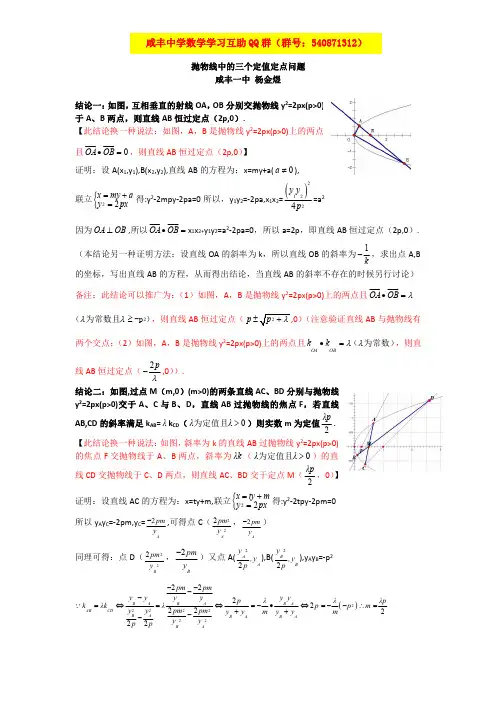 咸丰中学数学学习互助QQ群（群号：540871312）
抛物线中的三个定值定点问题
咸丰一中 杨金煜
结论一：如图，互相垂直的射线OA，OB分别交抛物线y²=2px(p>0)
于A、B两点，则直线AB恒过定点（2p,0）.
【此结论换一种说法：如图，A，B是抛物线y²=2px(p>0)上的两点
且OA•OB=0，则直线AB恒过定点（2p,0）】
证明：设A(x₁,y₁),B(x₂,y₂),直线AB的方程为：x=my+a(a≠0),
联立{x=my+a y²=2px得:y²-2mpy-2pa=0 所以，y₁y₂=-2pa,x₁x₂=(y₁y₂)²/4p²=a²
因为OA⊥OB,所以OA•OB=x₁x₂+y₁y₂=a²-2pa=0，所以a=2p，即直线AB恒过定点（2p,0）.
（本结论另一种证明方法：设直线OA的斜率为k，所以直线OB的斜率为-1/k，求出点A,B
的坐标，写出直线AB的方程，从而得出结论，当直线AB的斜率不存在的时候另行讨论）
备注：此结论可以推广为：（1）如图，A，B是抛物线y²=2px(p>0)上的两点且OA•OB=λ
(λ为常数且λ≥-p²)，则直线AB恒过定点（p±√p²+λ,0)（注意验证直线AB与抛物线有
两个交点；（2）如图，A，B是抛物线y²=2px(p>0)上的两点且k_OA•k_OB=λ(λ为常数)，则直
线AB恒过定点（-2p/λ,0)）.
结论二：如图,过点M（m,0）(m>0)的两条直线AC、BD分别与抛物线
y²=2px(p>0)交于A、C与B、D，直线AB过抛物线的焦点F，若直线
AB,CD的斜率满足k_AB=λk_CD（λ为定值且λ>0）则实数m为定值λp/2.
【此结论换一种说法：如图，斜率为k的直线AB过抛物线y²=2px(p>0)
的焦点F交抛物线于A、B两点，斜率为λk（λ为定值且λ>0）的直
线CD交抛物线于C、D两点，则直线AC、BD交于定点M（λp/2，0)】
证明：设直线AC的方程为：x=ty+m,联立{x=ty+m y²=2px得:y²-2tpy-2pm=0
所以y_Ay_C=-2pm,y_C=-2pm/y_A,可得点C（2pm²/y_A²，-2pm/y_A）
同理可得：点D（2pm²/y_B²，-2pm/y_B）又点A(y_A²/2p,y_A),B(y_B²/2p,y_B),y_Ay_B=-p²
∵k_AB=λk_CD⇔(y_B-y_A)/(y_B²/2p-y_A²/2p)=λ(-2pm/y_B--2pm/y_A)/(2pm²/y_B²-2pm²/y_A²)⇔2p/(y_B+y_A)=-λ/m•y_By_A/(y_B+y_A)⇔2p=-λ/m(-p²)∴m=λp/2